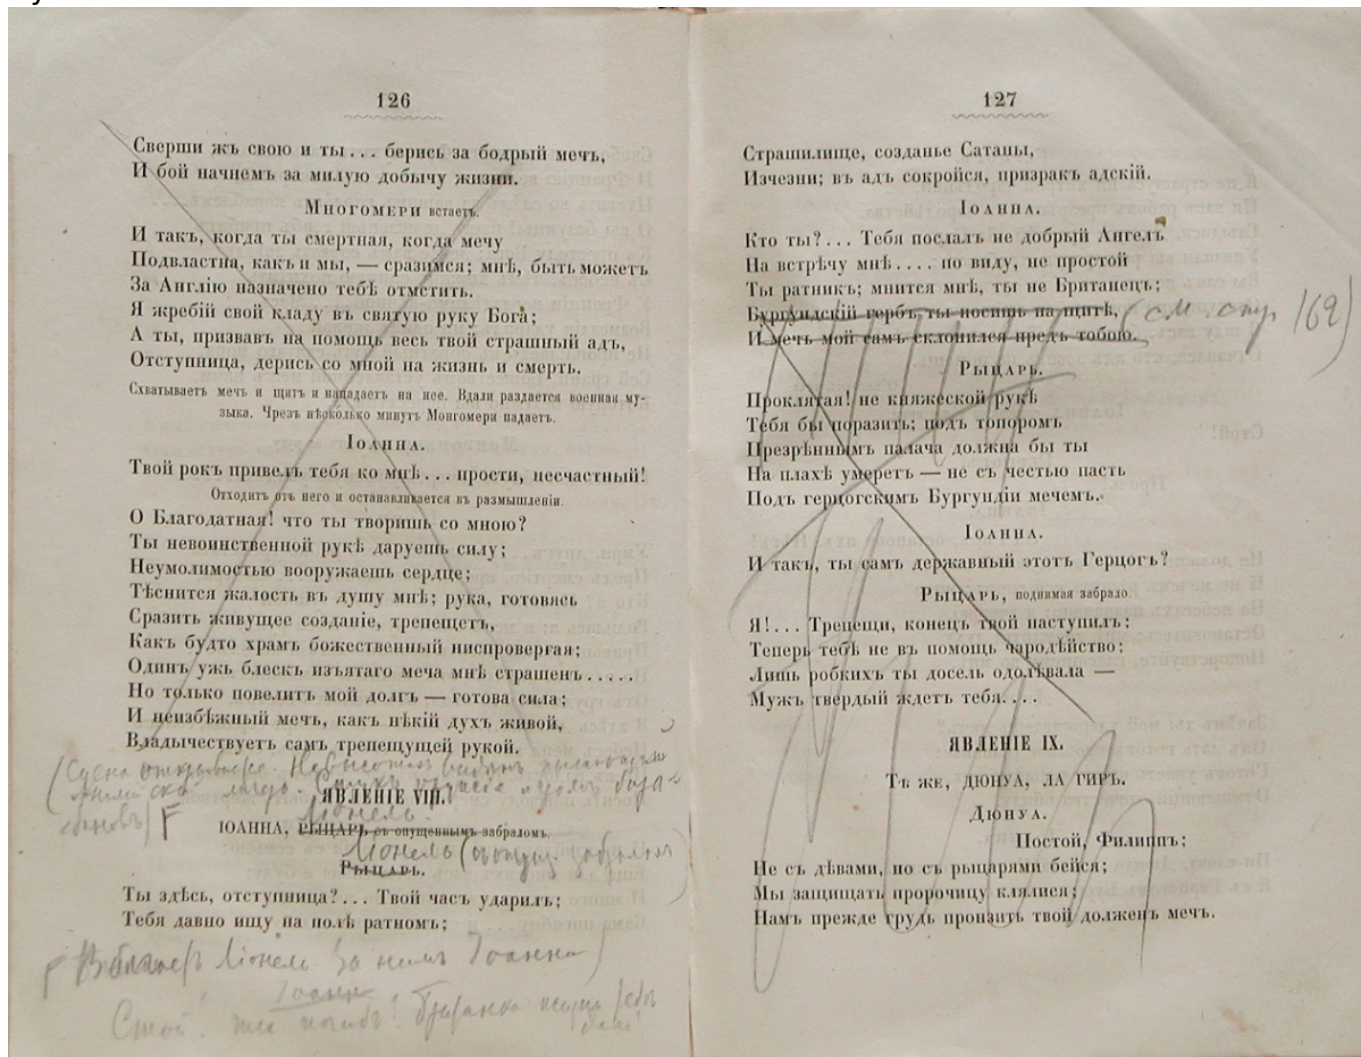 126
Сверши жъ свою и ты... берись за бодрый мечъ,
И бой начнемъ за милую добычу жизни.
Многомери встаетъ.
И такъ, когда ты смертная, когда мечу
Подвластна, какъ и мы, — сразимся; мнѣ, быть можетъ
За Англію назначено тебѣ отмстить.
Я жребій свой кладу въ святую руку Бога;
А ты, призвавъ на помощь весь твой страшный адъ,
Отступница, дерись со мной на жизнь и смерть.
Схватываетъ мечъ и щитъ и нападаетъ на нее. Вдали раздается военная му-
зыка. Чрезъ нѣсколько минутъ Монгомери падаетъ.
Іоанна.
Твой рокъ привелъ тебя ко мнѣ... прости, несчастный!
Отходитъ отъ него и останавливается въ размышленіи.
О Благодатная! что ты творишь со мною?
Ты невоинственной рукѣ даруешь силу;
Неумолимостью вооружаешь сердце;
Тѣснится жалость въ душу мнѣ; рука, готовясь
Сразить живущее созданіе, трепещетъ,
Какъ будто храмъ божественный ниспровергая;
Одинъ ужь блескъ изъятаго меча мнѣ страшенъ.....
Но только повелитъ мой долгъ — готова сила;
И неизбѣжный мечъ, какъ нѣкій духъ живой,
Владычествуетъ самъ трепещущей рукой.
ЯВЛЕНІЕ VIII.
Ліонель.
ІОАННА, РЫЦАРЬ съ опущеннымъ забраломъ.
Ліонель
Рыцарь.
Ты здѣсь, отступница?... Твой часъ ударилъ;
Тебя давно ищу на полѣ ратномъ;
Ліонель За нимъ Іоанна)
Стой!
127
Страшилище, созданье Сатаны,
Изчезни; въ адъ сокройся, призракъ адскій.
Іоанна.
Кто ты?... Тебя послалъ не добрый Ангелъ
На встрѣчу мнѣ.... по виду, не простой
Ты ратникъ; мнится мнѣ, ты не Британецъ;
Бургундскій гербъ ты носишь на щитѣ, (см. стр. 169)
И мечъ мой самъ склонился предъ тобою.
Рыцарь.
Проклятая! не княжеской рукѣ
Тебя бы поразить; подъ топоромъ
Презрѣннымъ палача должна бы ты
На плахѣ умереть — не съ честью пасть
Подъ герцогскимъ Бургундіи мечемъ.
Іоанна.
И такъ, ты самъ державный этотъ Герцогъ?
Рыцарь, поднимая забрало.
Я!... Трепещи, конецъ твой наступилъ;
Теперь тебѣ не въ помощь чародѣйство;
Лишь робкихъ ты досель одолѣвала —
Мужъ твердый ждетъ тебя....
ЯВЛЕНІЕ IX.
Тѣ же, ДЮНУА, ЛА ГИРЪ.
Дюнуа.
Постой, Филиппъ;
Не съ дѣвами, но съ рыцарями бейся;
Мы защищать пророчицу клялися;
Намъ прежде грудь пронзить твой долженъ мечъ.